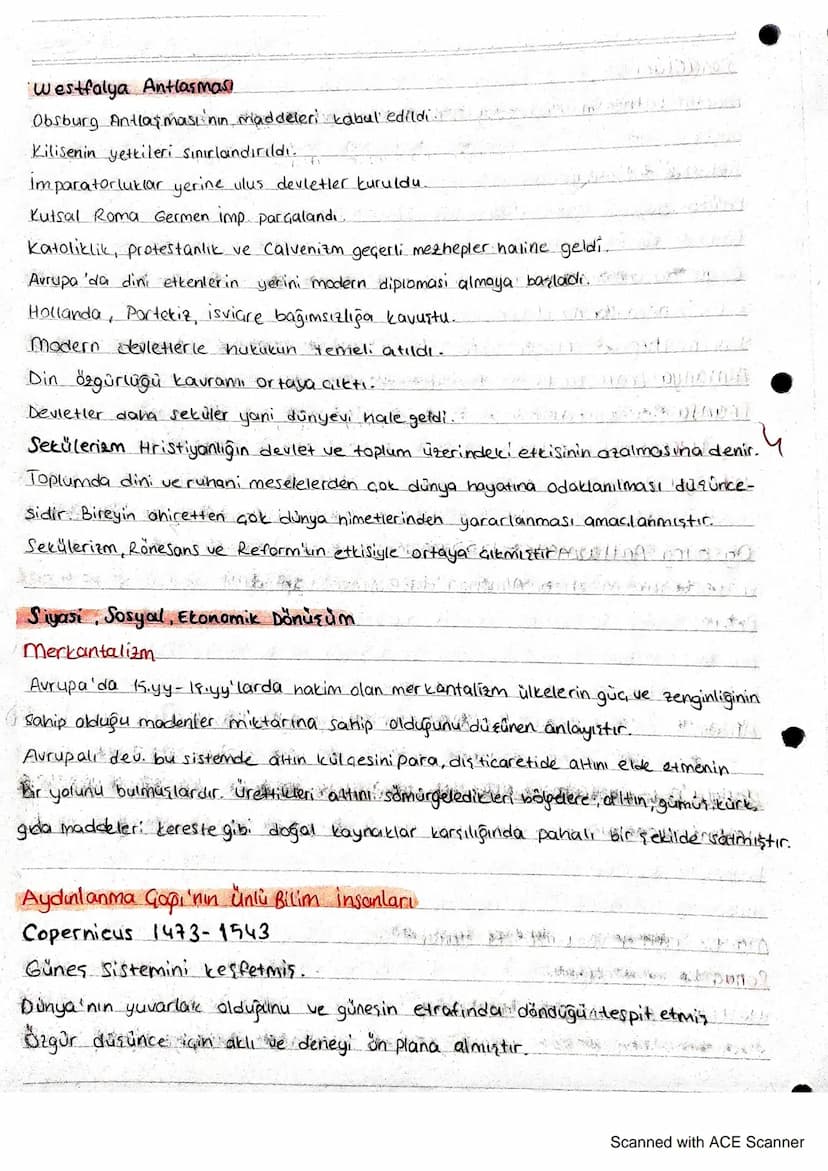 Westfalya Antlaşması
Obsburg Antlaşması'nın maddeleri kabul edildi.
Kilisenin yetkileri sınırlandırıldı.
İmparatorluklar yerine ulus devletler kuruldu.
Kutsal Roma Germen imp. parçalandı.
Katoliklik, protestanlık ve Calvenizm geçerli mezhepler haline geldi.
Avrupa'da dini etkenlerin yerini modern diplomasi almaya başladı.
Hollanda, Portekiz, isviçre bağımsızlığa kavuştu.
Modern devletlerle hukukun temeli atıldı.
Din özgürlüğü kavramı ortaya çıktı.
Devletler daha seküler yani dünyevi hale geldi.
Sekülerizm Hristiyanlığın devlet ve toplum üzerindeki etkisinin azalmasına denir.
Toplumda dini ve ruhani meselelerden çok dünya hayatına odaklanılması düşünce-
sidir. Bireyin ahiretten çok dünya nimetlerinden yararlanması amaçlanmıştır.
Sekülerizm, Rönesans ve Reform'un etkisiyle ortaya çıkmıştır
Siyasi, Sosyal, Ekonomik Dönüşüm
Merkantalizm
Avrupa'da 15.yy-18.yy'larda hakim olan merkantalizm ülkelerin güç ve zenginliğinin
sahip olduğu madenler miktarına sahip olduğunu düşünen anlayıştır.
Avrupalı dev. bu sistemde altın külçesini para, dış ticaretide altını elde etmenin
bir yolunu bulmuşlardır. Ürettikleri altını sömürgeledikleri bölgelere, altın, gümüş, kürk,
gıda maddeleri kereste gibi doğal kaynaklar karşılığında pahalı bir şekilde satmıştır.
Aydınlanma Çağı'nın Ünlü Bilim insanları
Copernicus 1473-1543
Güneş Sistemini keşfetmiş.
Dünya'nın yuvarlak olduğunu ve güneşin etrafında döndüğün tespit etmiş
Özgür düşünce için aklı ve deneyi ön plana almıştır.
Scanned with ACE Scanner